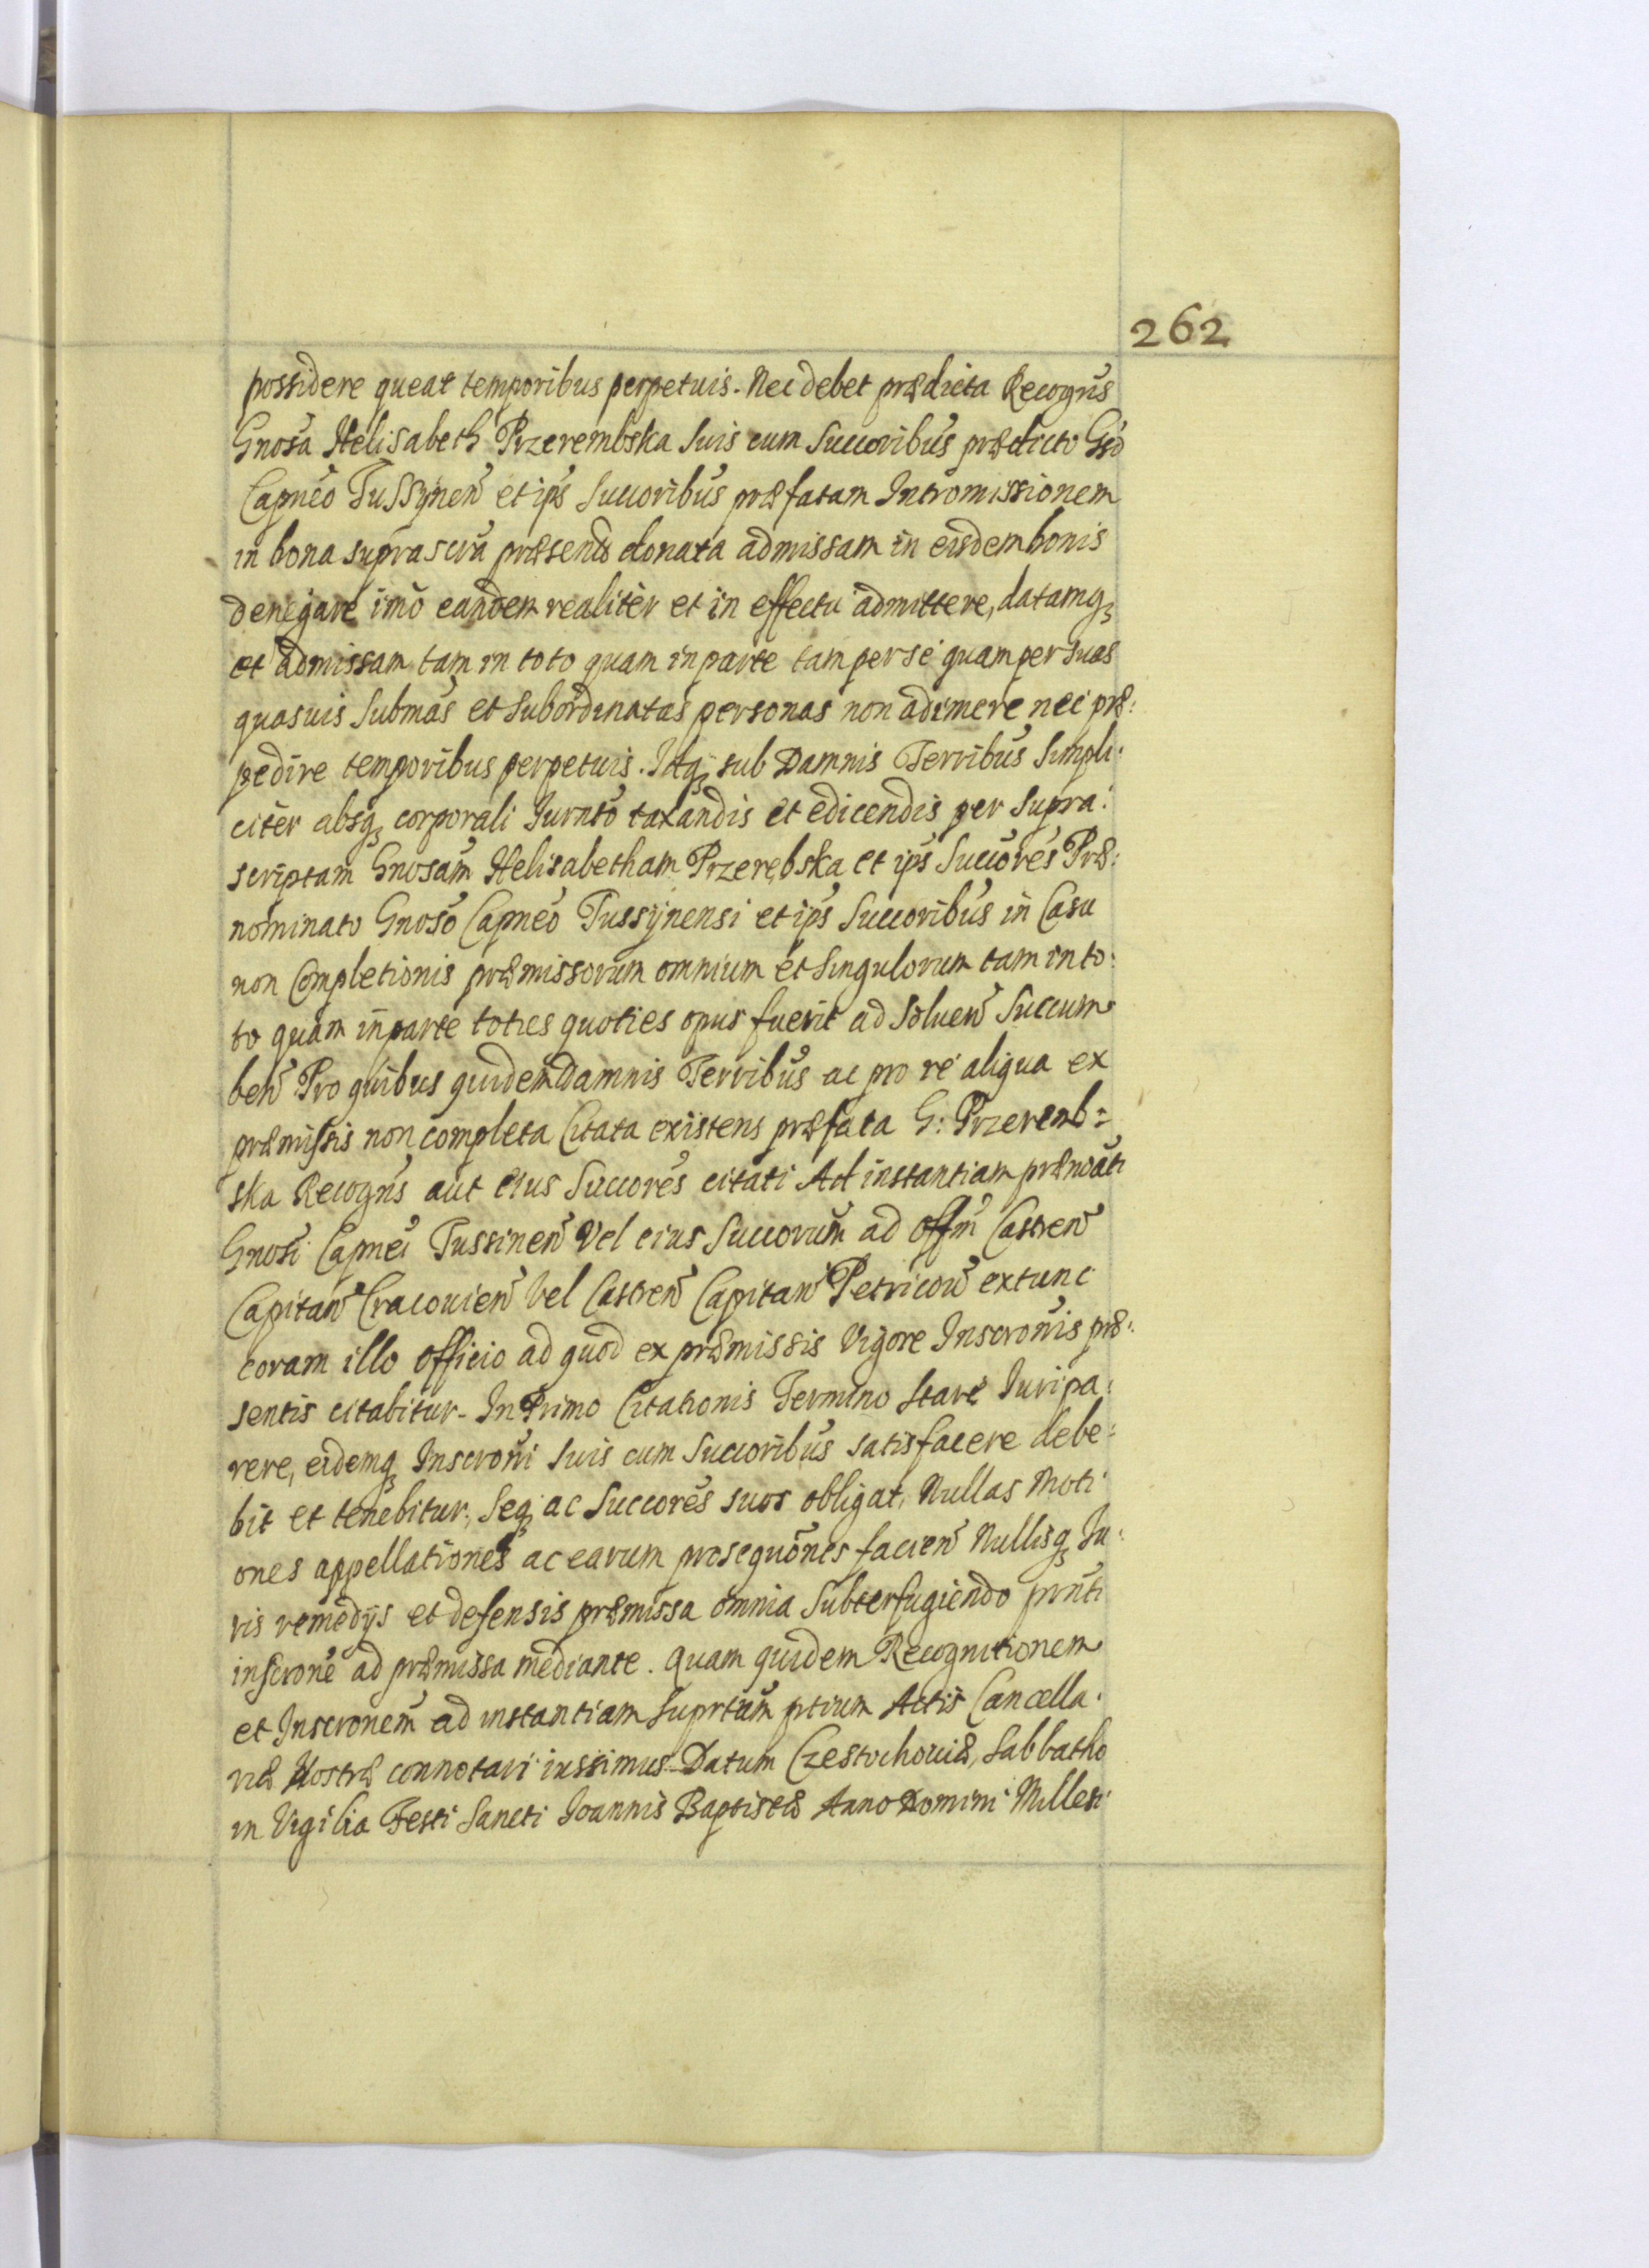 262
possidere queat temporibus perpetuis. Nec debet prædicta Recogn͂s
Gnosa͂ Helisabeth Przerembska suis cum Succoribus͂ prædicto Gso͂
Capneo͂ Tussynen͂ et ips͂ Succoribus͂ præfatam Intromissionem
in bona suprascra͂ præsento donata admissam in eisdem bonis
denegare imò eandem realitèr et in effectu admittere, datamq₃
et admissam tam in toto quam in parte tam per se quam per suas
quasuis Submas͂ et Subordinatas personas non adimere nec præ:
pedire temporibus perpetuis. Idq₃ sub Damnis Terribus͂ Simpli:
citèr absq₃ corporali Jurnto͂ taxandis et edicendis per Supra:
scriptam Gnosam͂ Helisabetham Przerębska et ips͂ Succores͂ Præ:
nominato Gnoso͂ Capneo͂ Tussynensi et ips͂ Succoribus͂ in Casu
non Completionis præmissorum omnium et Singulorum tam in to:
to quam in parte toties quoties opus fuerit ad Soluen͂ Succum
ben͂ Pro quibus quidem Damnis Terribus͂ ac pro re aliqua ex
præmissis non completa Citata existens præfata G: Przeremb=
ska Recogn͂s aut eius Succores͂ citati Ad instantiam prænoa͂ti
Gnosi͂ Capnei͂ Tussinen͂ Vel eius Succorum͂ ad Offm͂ Castren͂
Capitan͂ Cracouien͂ Vel Castren͂ Capitan͂ Petricou͂ extunc
coram illo officio ad quod ex præmissis Vigore Inscronis͂ præ:
sentis citabitur. In Primo Citationis Termino Stare Juri pa:
rere, eidemq₃ Inscroni͂ suis cum Succoribus͂ satisfacere debe:
bit et tenebitur, Seq₃ ac Succores͂ suos obligat, Nullas Moti
ones appellationes ac earum prosequo͂nes facien͂ Nullisq₃ Ju:
ris remedijs et defensis præmissa omnia Subterfugiendo prn͂ti
inscrone͂ ad præmissa mediante. Quam quidem Recognitionem
et Inscronem͂ ad instantiam suprtum͂ ptium Actis Cancella:
riæ Nostræ connotari iussimus. Datum Czestochouiæ, Sabbatho
in Vigilia Festi Sancti Joannis Baptistæ Anno Domini Millesi